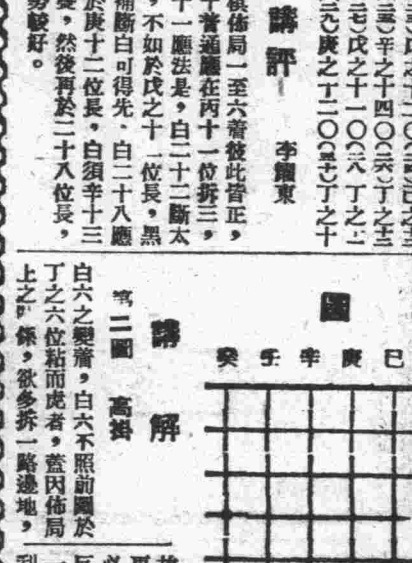 三五)辛之十四〇(三六)丁之十三
三七)戊之十一〇(三八)丁之十二
三九)庚之十二〇(四十)丁之十
講評 李鐵東
棋佈局一至六着彼此皆正,
十普通應在丙十一位拆三,
十一應法是,白二十二斷太
,不如於戊之十一位長,黑
補斷白可得先.白二十八應
於庚十二位長,白須辛十三
,然後再於二十八位長,
勢較好。
圖
癸 壬 辛 庚 巳
講解
第二圖 高掛
白六之變着,白六不照前圖於
丁之六位粘而虎者,蓋因佈局
上之關係,欲多拆一路邊地,